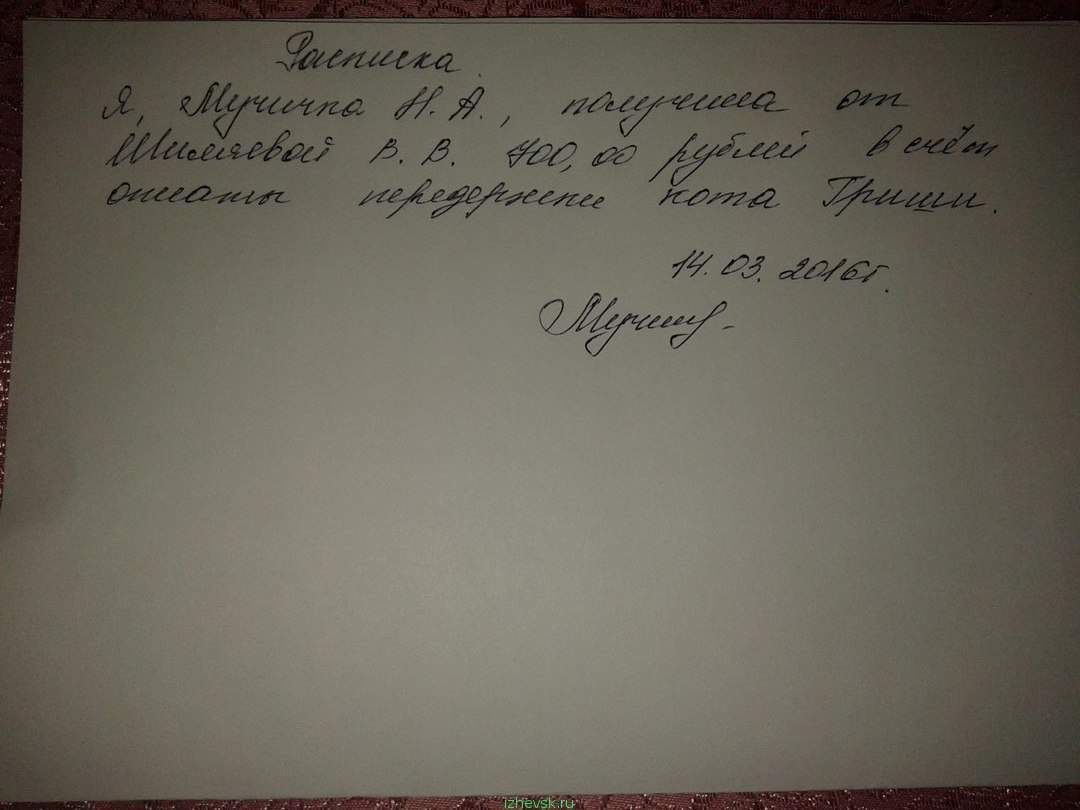 Расписка
Я, Мучичка Н. А., получила от
Шиляевой В. В. 700,00 рублей в счёт
оплаты передержки кота Гриши.
14.03.2016г.
izhevsk.ru